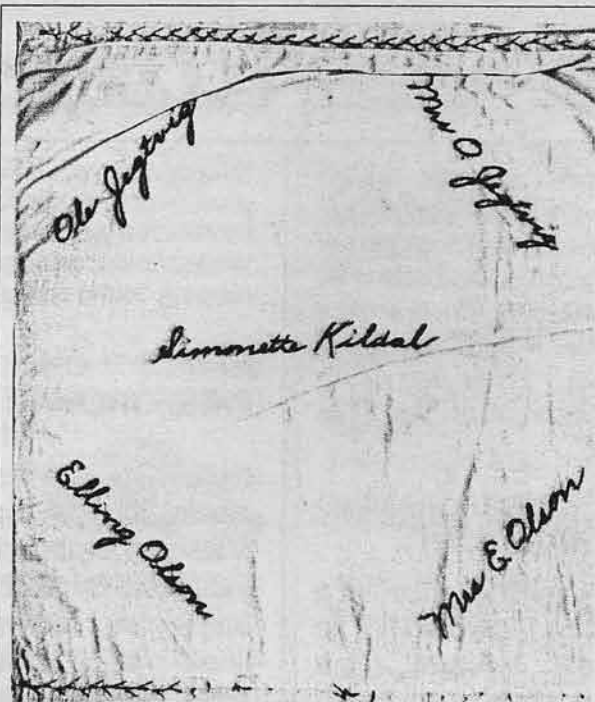 Ole Jegtvig
Mrs O. Jegtvig
Simonette Kildal
Elling Olson
Mrs E. Olson